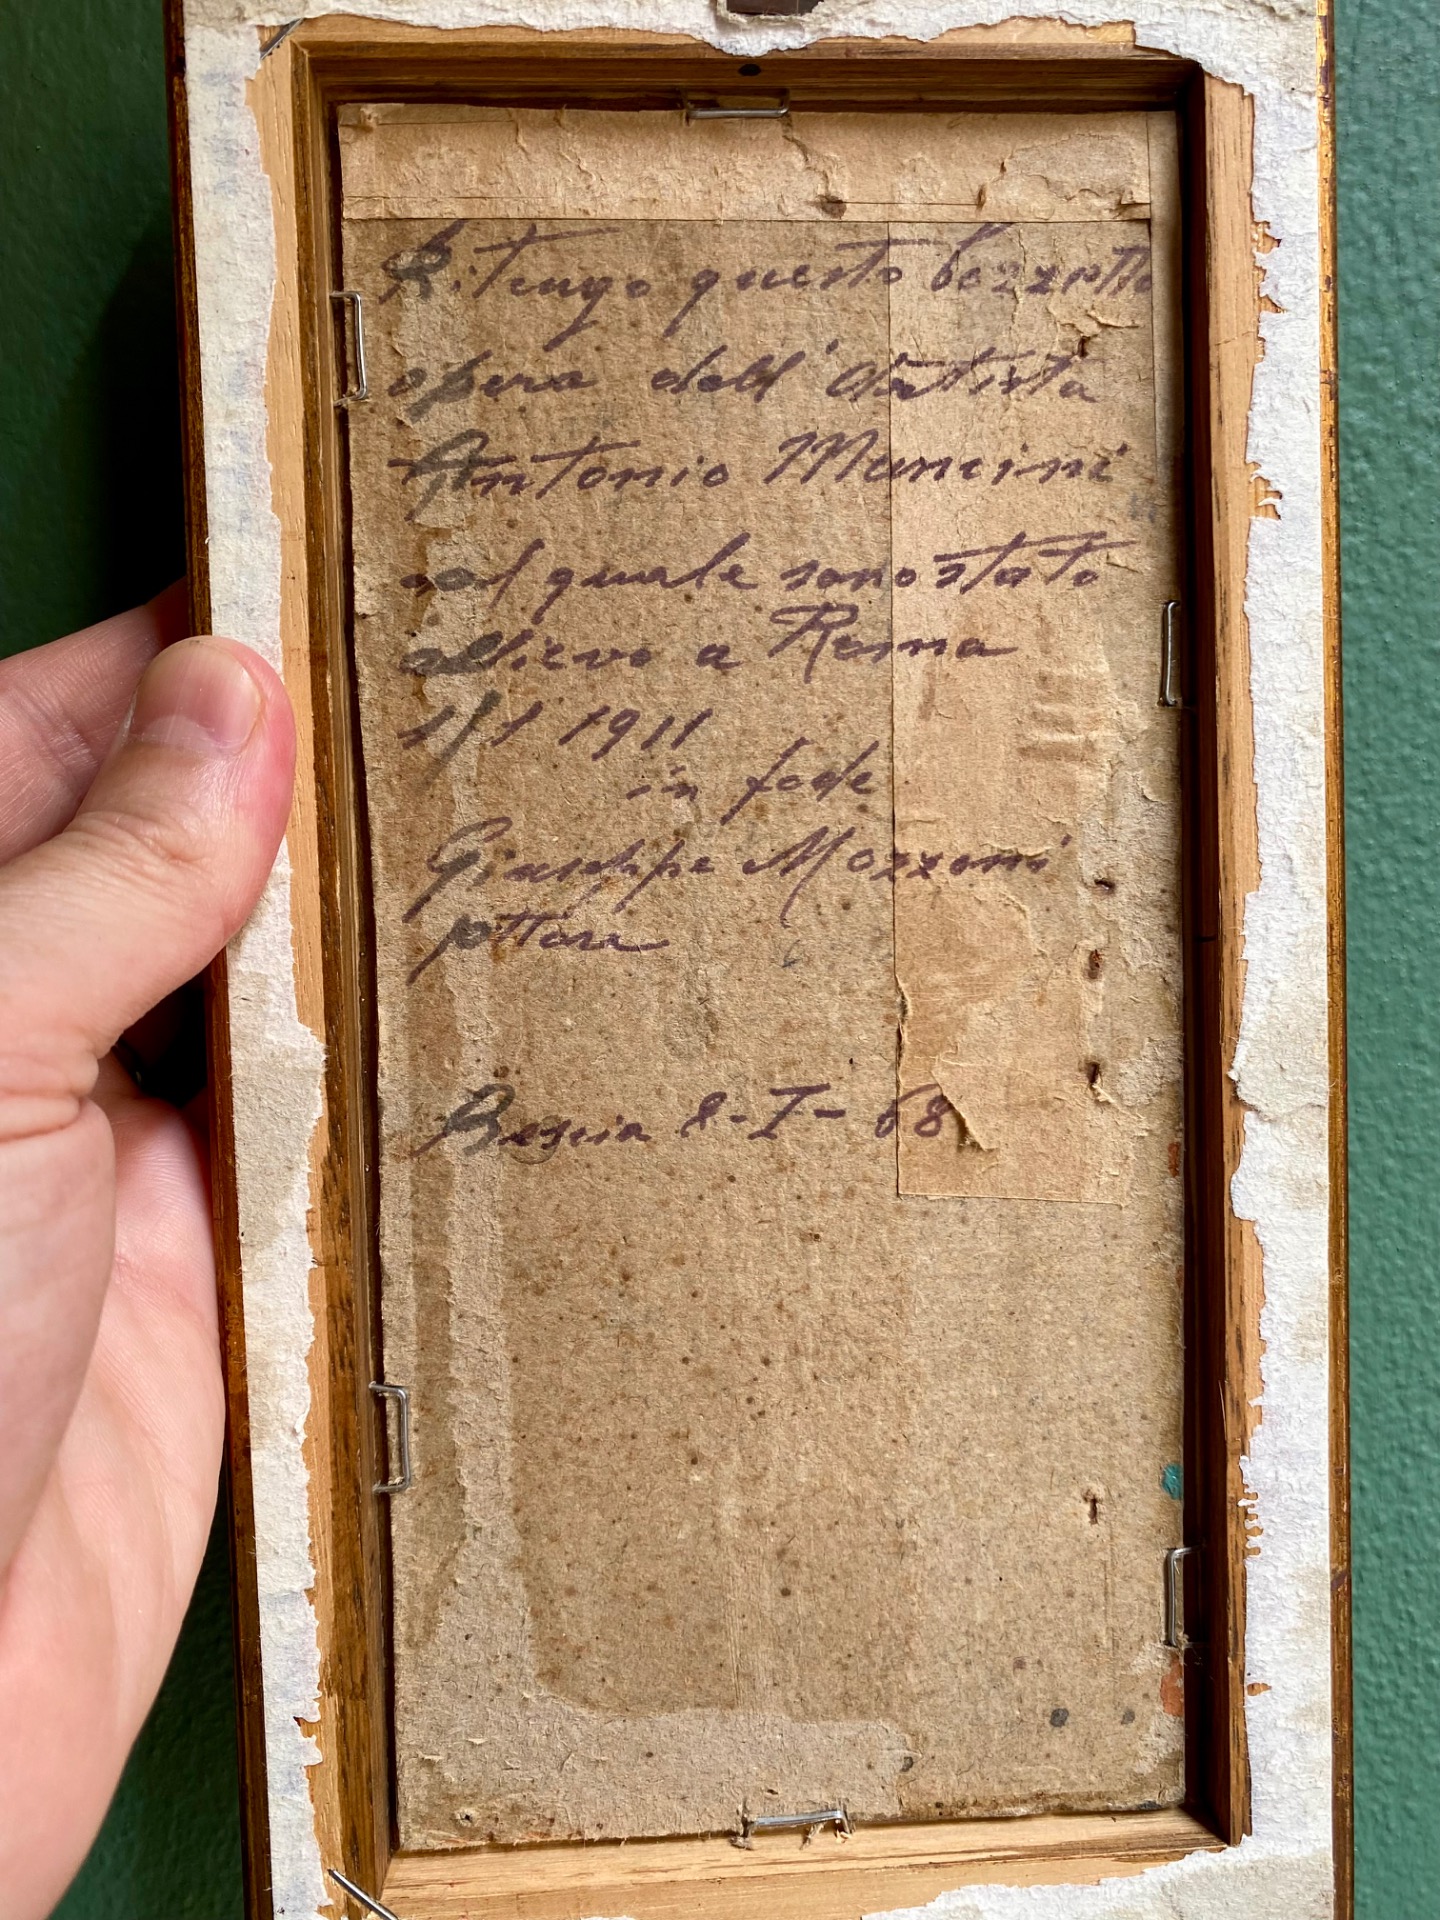 Ritengo questo bozzetto
opera dell'artista
Antonio Mancini
del quale sono stato
allievo a Roma
1911
in fede
Giuseppe Mozzoni
pittore
Brescia 8-I-68